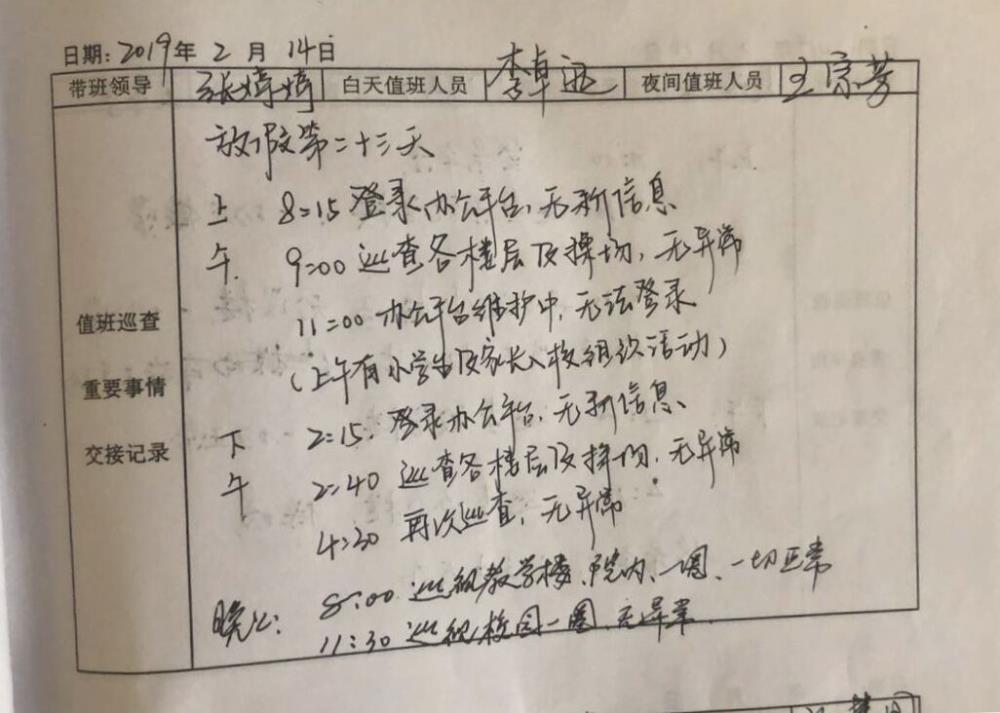 日期:2019年 2 月 14日
带班领导 张婷婷 白天值班人员 李卓 夜间值班人员 王宗芳
放假第二十三天
上 8:15 登录办公平台,无新信息
午 9:00 巡查各楼层及操场,无异常
11:00 办公平台维护中,无法登录
值班巡查
(上午有小学生及家长入校组织活动)
重要事情
下 2:15. 登录办公平台,无新信息、
交接记录
午 2:40 巡查各楼层及操场,无异常
4:30 再次巡查,无异常
晚上: 8:00 巡视教学楼、院内、一周、一切正常
11:30 巡视校园一圈,无异常.